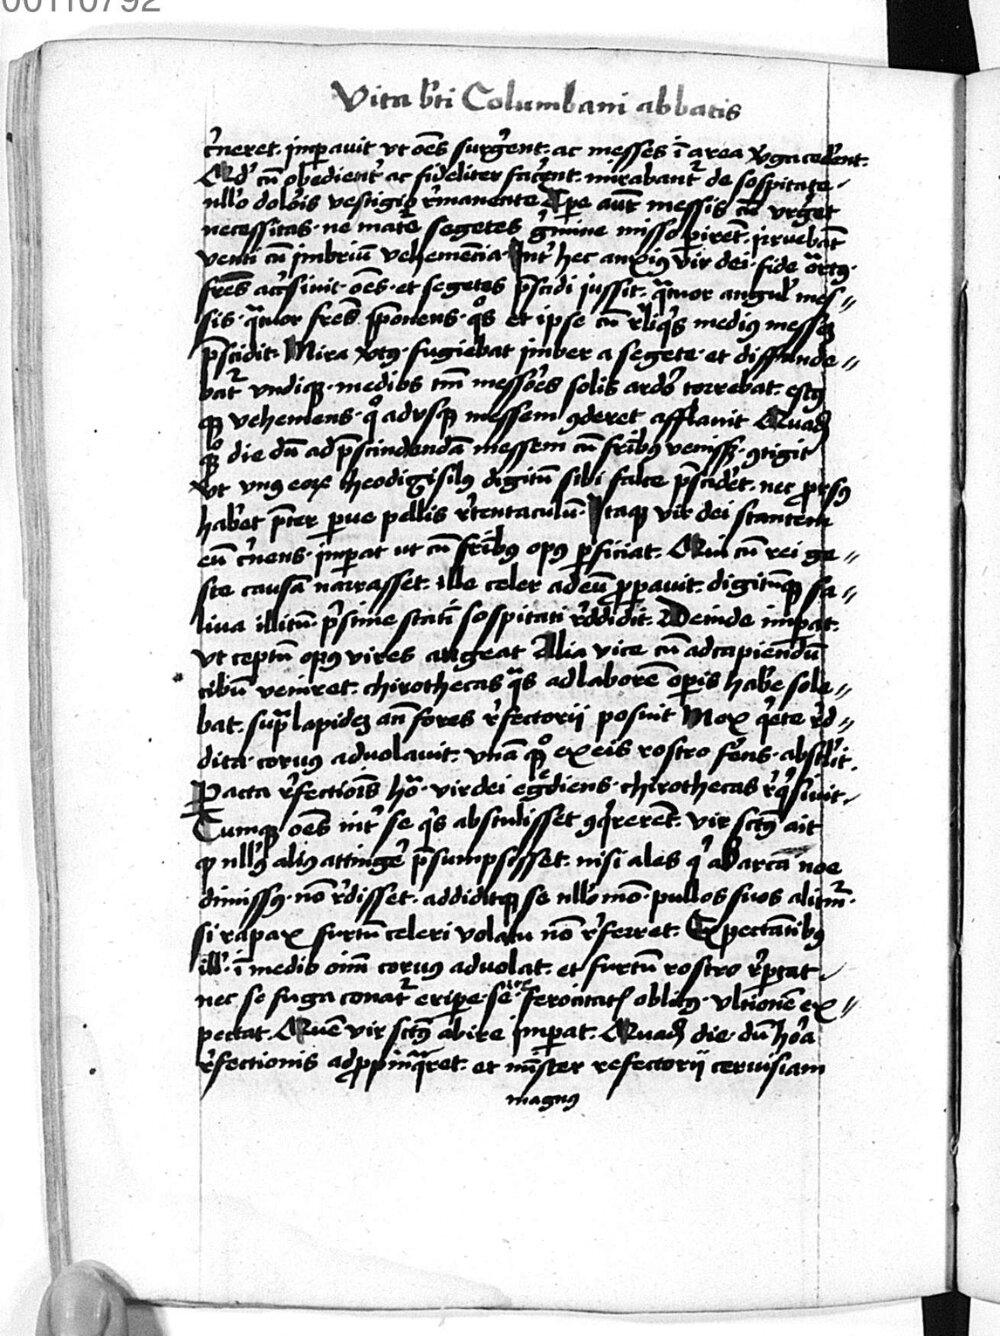 00110792
Vita bt̄i Columbani abbatis
c̓neret. imꝑauit vt oēs surg̓ent. ac messes ī area v̓ga ced̓ent.
Qd̓ cū obedient̓ ac fideliter fac̓ent. mirabant᷑ de sospitate
nll̓o dolo̓is vestigio r̓manente Tꝑe aut̄ messis cū vrg̓et
necessitas. ne mat̄e segetes g̓mine misso ꝑiret. irruebāt
venti cū imbriū vehemēcia. Int̓ hec anxiꝰ vir dei. fide
fr̄es acc̓siuit. oēs. et segetes p̄scidi iussit. q̄tuor angul̓ mes-
sis. q̄tuor fr̄es īponens. q̊s et ipse cū r̓liq̓s mediꝰ messeꝫ
p̄scidit. Mira v̓tꝰ. fugiebat imber a segete. et diffunde-
bat᷑ vndiqꝫ. medios tm̄ messōes solis ardo̓ torrebat. estꝰ
qꝫ vehemens. q̊ advsqꝫ messem ꝯderet afflauit Quadā
qꝫ die dū ad p̄scindendā messem cū fr̄ibꝯ venissꝫ. ꝯtigit
vt vnꝰ eoꝝ theodigisilꝰ digitū sibi falce p̄scid̓et. nec ꝓrsꝰ
hab̓et p̄ter ꝑue pellis r̓tentaculū. Itaqꝫ vir dei stantem
eū c̓nens. imꝑat ut cū fr̄ibꝰ opꝰ ꝑficiat. Qui cū rei ge-
ste causā narrasset. ille celer ad eū ꝓꝑauit. digitūqꝫ sa-
liua illitū. p̓stine statī sospitati r̓ddidit. Deinde imꝑat.
vt ceptū opꝰ vires augeat Alia vice cū ad capiendū
cibū veniret. chirothecas q̄s ad laborē oꝑis hab̓e sole-
bat. sup̄ lapideꝫ an̄ fores r̓fectorii posuit Mox q̓ete r̓d-
dita. coruꝰ aduolauit. vnā qꝫ ex eis rostro fēns. abstl̓it.
Pacta r̓fectiōis ho̓a. vir dei eg̓diens. chirothecas r̓q̓siuit.
Cumqꝫ oēs int̓ se q̓s abstulisset ꝯq̓rerēt. vir sctꝰ ait
ꝙ nll̓ꝰ aliꝰ atting̓e p̄sumpsisset. nisi ales q̓ ab arca noe
dimissꝰ. nō r̓disset. addiditqꝫ se nll̓o mō. pullos suos alit᷑m̄.
si rapax furtū celeri volatu nō r̓ferret. Expectātibꝰ
ill̓. ī medio oīm coruꝰ aduolat. et furtū rostro r̓ptat.
nec se fuga conat᷑ eriꝑe. sꝫ ferocitatꝭ oblitꝰ. vltionē ex-
pectat. Quē vir sctꝰ abire imꝑat. Quadā die. dū ho̓a
r̓fectionis adꝓpinq̄ret. et mīster refectorij ceruisiam
magnꝰ